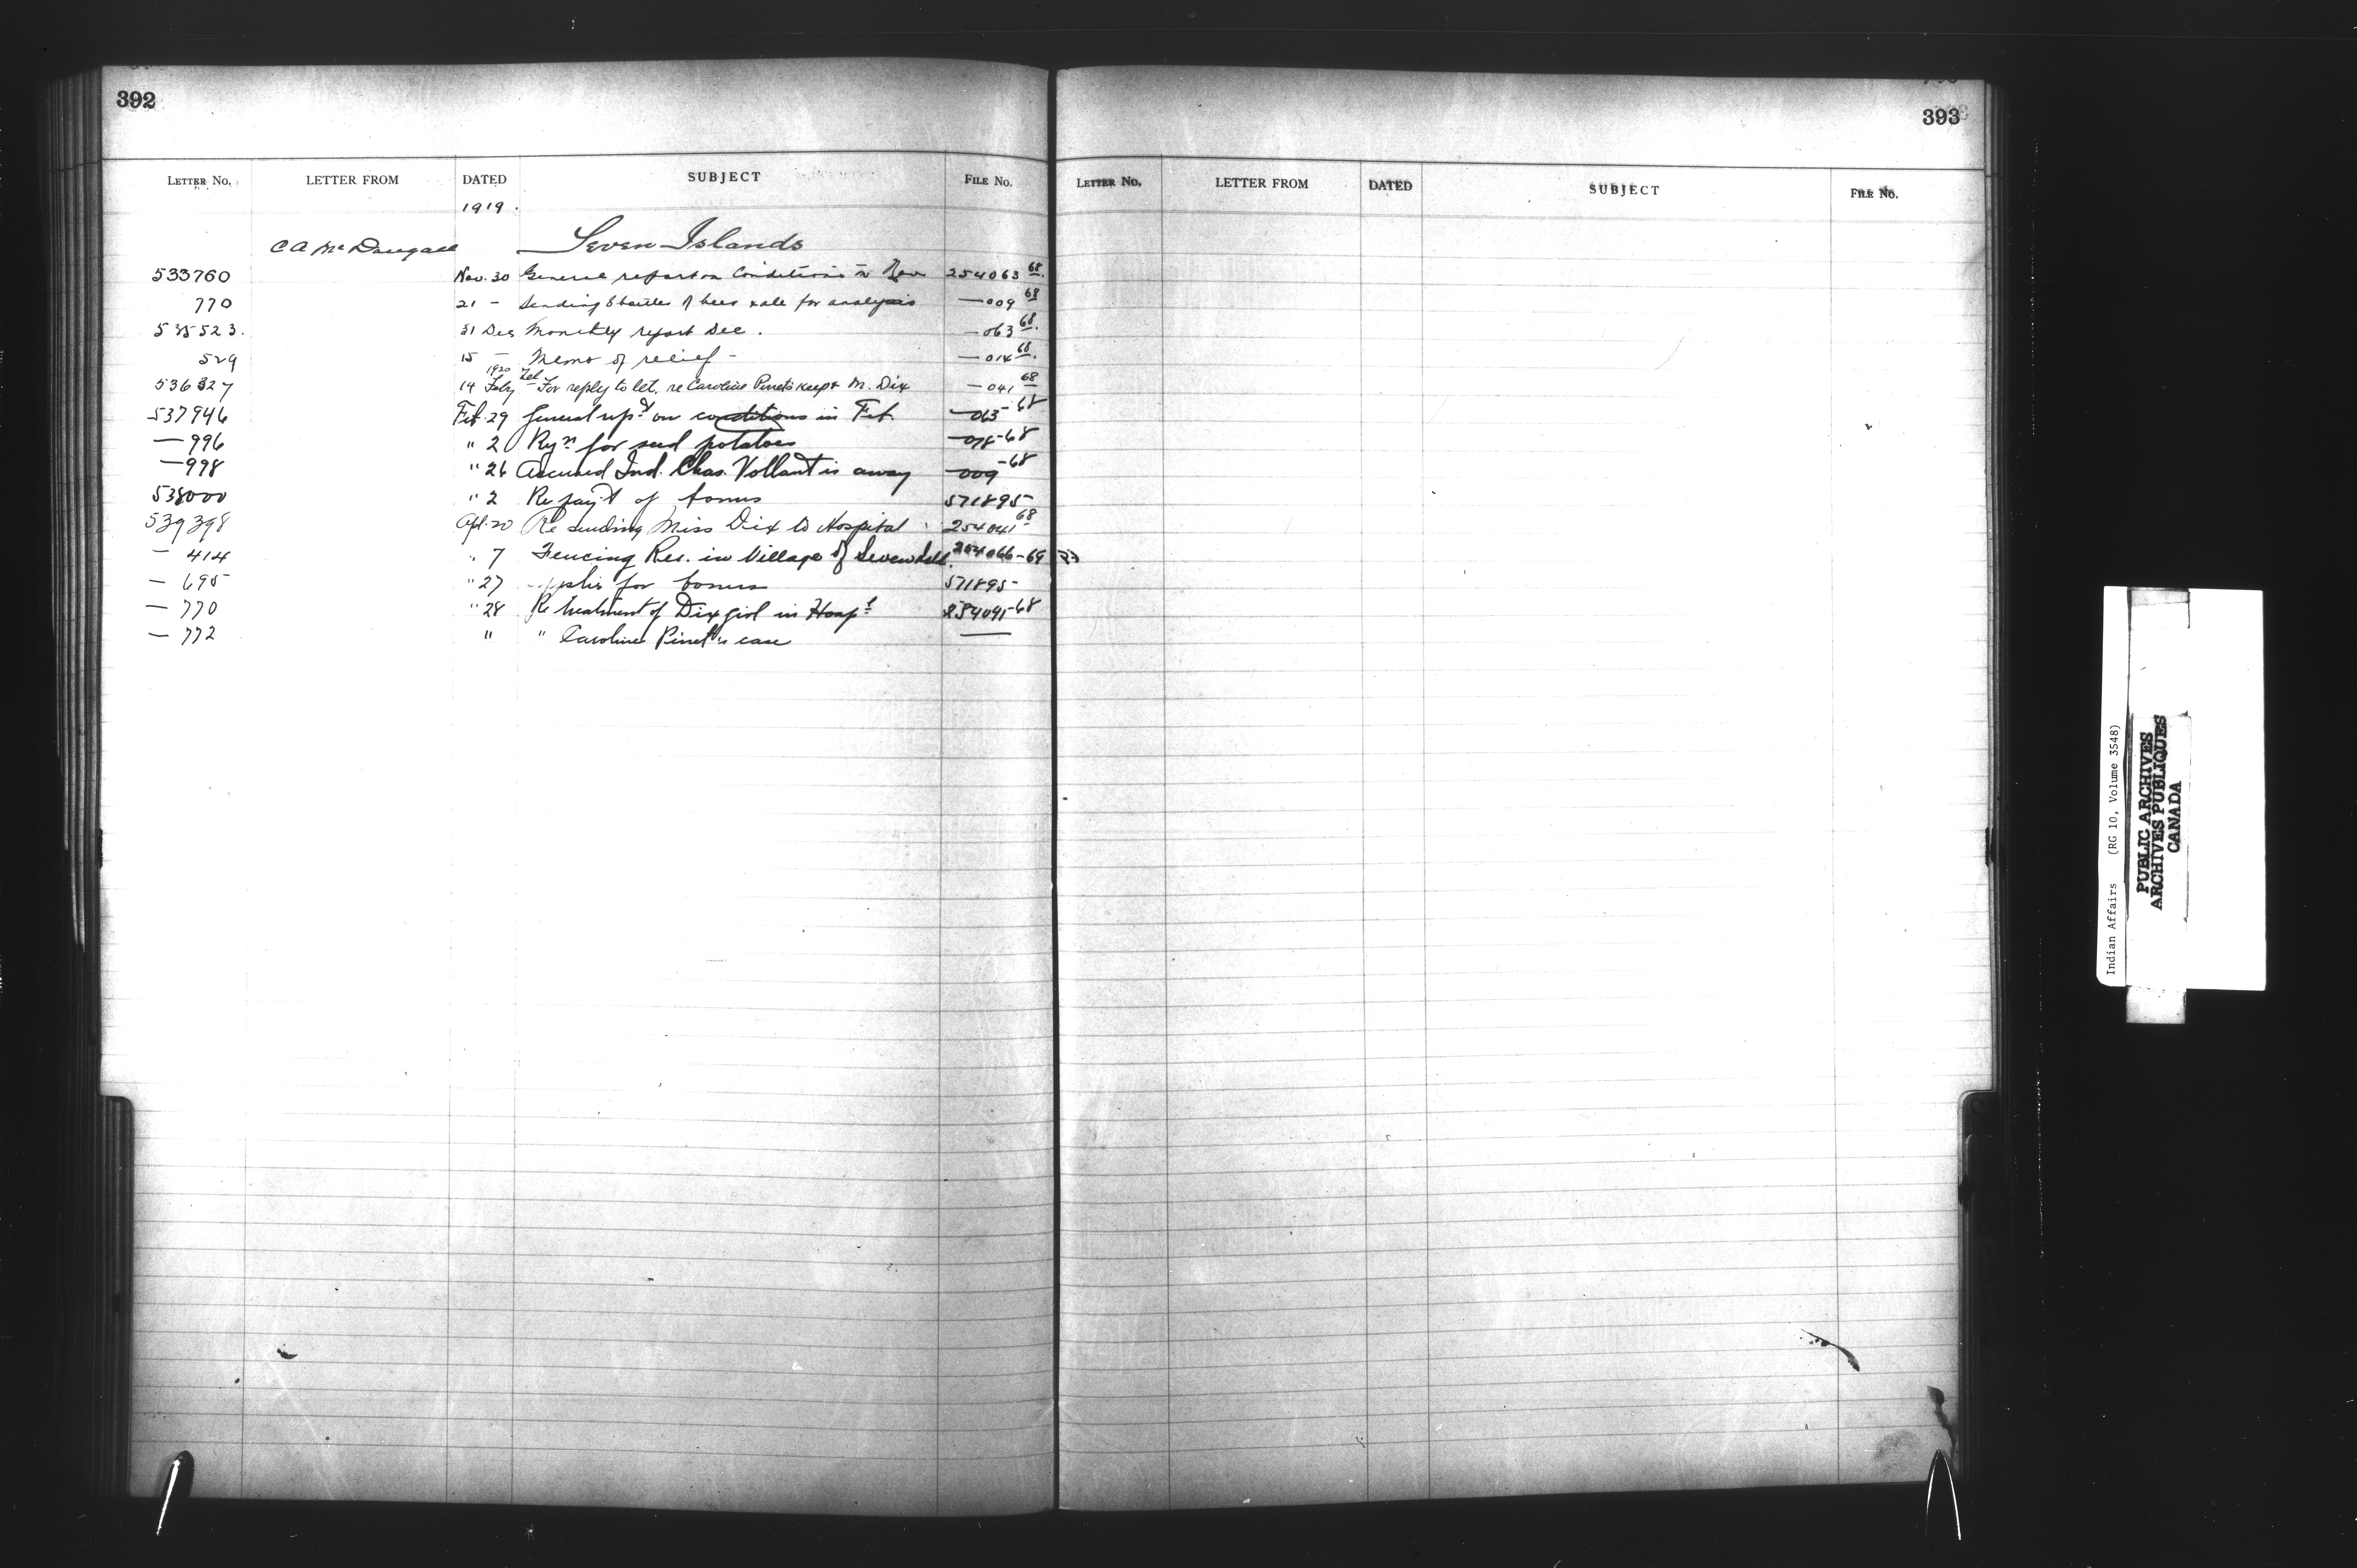 392
LETTER NO. LETTER FROM DATED SUBJECT FILE No.
1919.
C A McDougall Seven Islands
533760 Nov. 30 General report on conditions in Nov 254063 68
770 21 - Sending bottles of beer & ale for analysis - 009 68
535523. 31 Dec Monthly report Dec. - 063 68.
529 15 - Memo of relief - - 014 68.
1920 Tel
536327 14 Feby - For reply to let. re Caroline Pinet's keep & M. Dix - 041 68
537946 Feb. 29 General rept on conditions in Feb. - 063-68
- 996 " 2 Rqn for seed potatoes - 078-68
- 998 " 26 Accused Ind. Chas. Vollant is away - 009-68
538000 " 2 Re pay't of bonus 571895
539398 Apl. 20 Re sending Miss Dix to Hospital 254041 68
- 414 " 7 Fencing Res. in Village of Seven Isld. 254066-69
- 695 " 27 Applies for bonus 571895
- 770 " 28 Re treatment of Dix girl in Hospl 254041-68
- 772 " " Caroline Pinet's case -
393
LETTER No. LETTER FROM DATED SUBJECT FILE No.
Indian Affairs (RG 10, Volume 3548)
PUBLIC ARCHIVES
ARCHIVES PUBLIQUES
CANADA